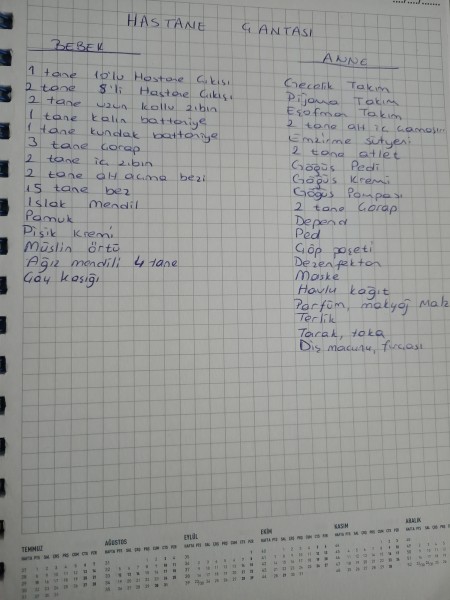 HASTANE ÇANTASI
BEBEK
1 tane 10'lu Hastane Çıkışı
2 tane 8'li Hastane Çıkışı
2 tane uzun kollu zıbın
1 tane kalın battaniye
1 tane kundak battaniye
3 tane çorap
2 tane iç zıbın
2 tane alt açma bezi
15 tane bez
Islak mendil
Pamuk
Pişik kremi
Müslin örtü
Ağız mendili 4 tane
Çay kaşığı
ANNE
Gecelik Takım
Pijama Takım
Eşofman Takım
2 tane alt iç çamaşırı
Emzirme sütyeni
2 tane atlet
Göğüs Pedi
Göğüs Kremi
Göğüs Pompası
2 tane Çorap
Depend
Ped
Çöp poşeti
Dezenfektan
Maske
Havlu kağıt
Parfüm, makyaj Malz
Terlik
Tarak, toka
Diş macunu, fırçası
TEMMUZ
AĞUSTOS
EYLÜL
EKİM
KASIM
ARALIK